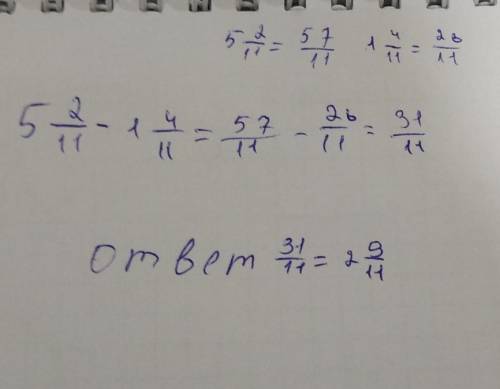 5 2/11 = 57/11 1 4/11 = 26/11
5 2/11 - 1 4/11 = 57/11 - 26/11 = 31/11
ответ 31/11 = 2 9/11